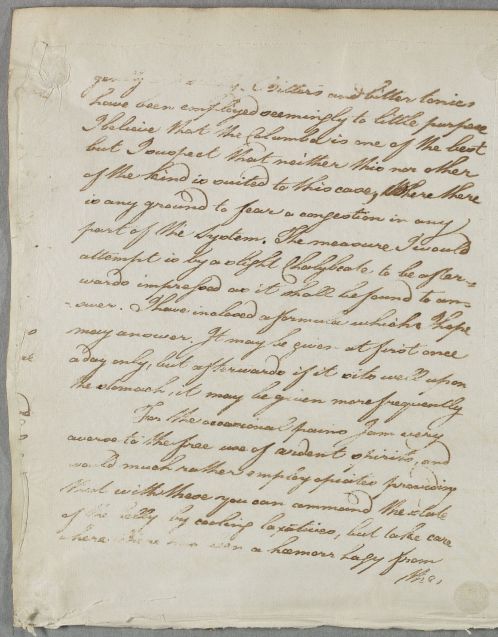 Bitters and bitter tonics
have been employed seemingly to little purpose
I believe that the Columba is one of the best
but I suspect that neither this nor other
of the kind is suited to this case, Where there
is any ground to fear a congestion in any
part of the System. The measure I would
attempt is by a slight Chalybeate to be after-
wards impressed as it shall be found to an-
-swer. I have inclosed a formula which I hope
may answer. It may be given at first once
a day only, but afterwards if it sits well upon
the stomach, it may be given more frequently
For the occasional pains I am very
averse to the free use of ardent spirits, and
would much rather employ opiates providing
that with these you can command the state
of the belly by cooling laxatives, but take care
where there a hæmorrhagy from
the,